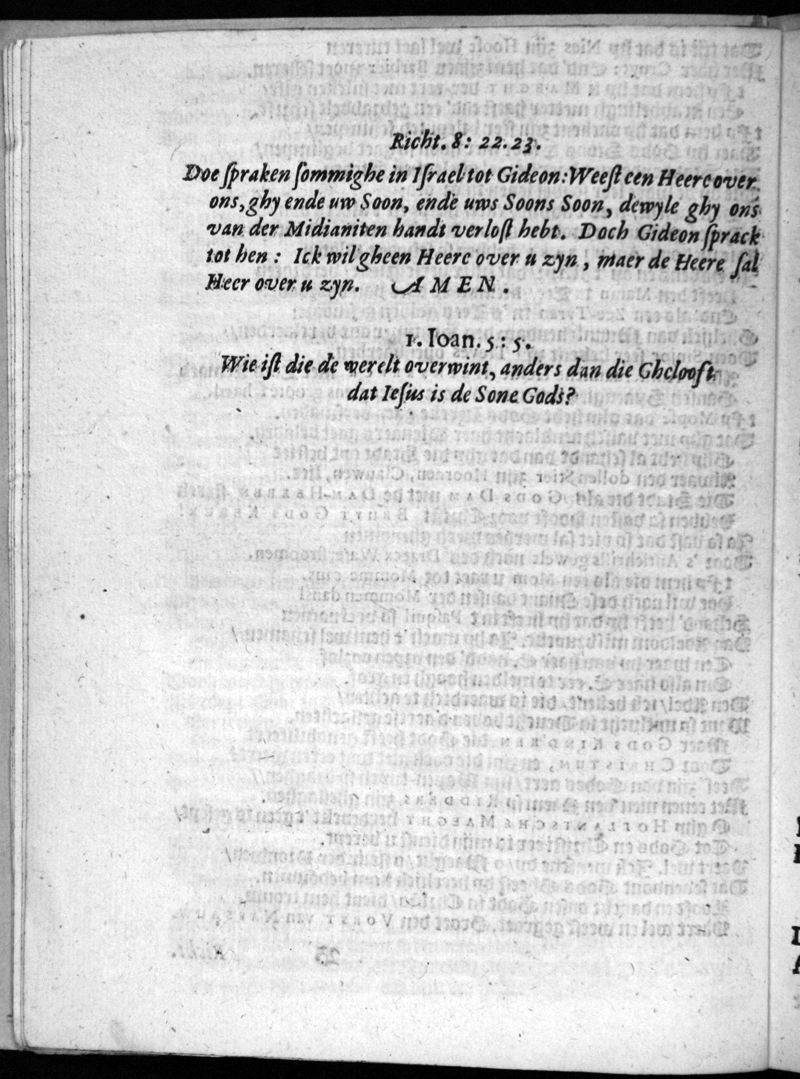 Richt. 8: 22. 23.
Doe ſpraken ſommighe in Iſrael tot Gideon: Weeſt een Heere over
ons, ghy ende uw Soon, ende uws Soons Soon, dewyle ghy ons
van der Midianiten handt verloſt hebt. Doch Gideon ſprack
tot hen: Ick wil gheen Heere over u zyn, maer de Heere ſal
Heer over u zyn. AMEN.
1. Ioan. 5: 5.
Wie iſt die de werelt overwint, anders dan die Ghelooft
dat Ieſus is de Sone Gods?